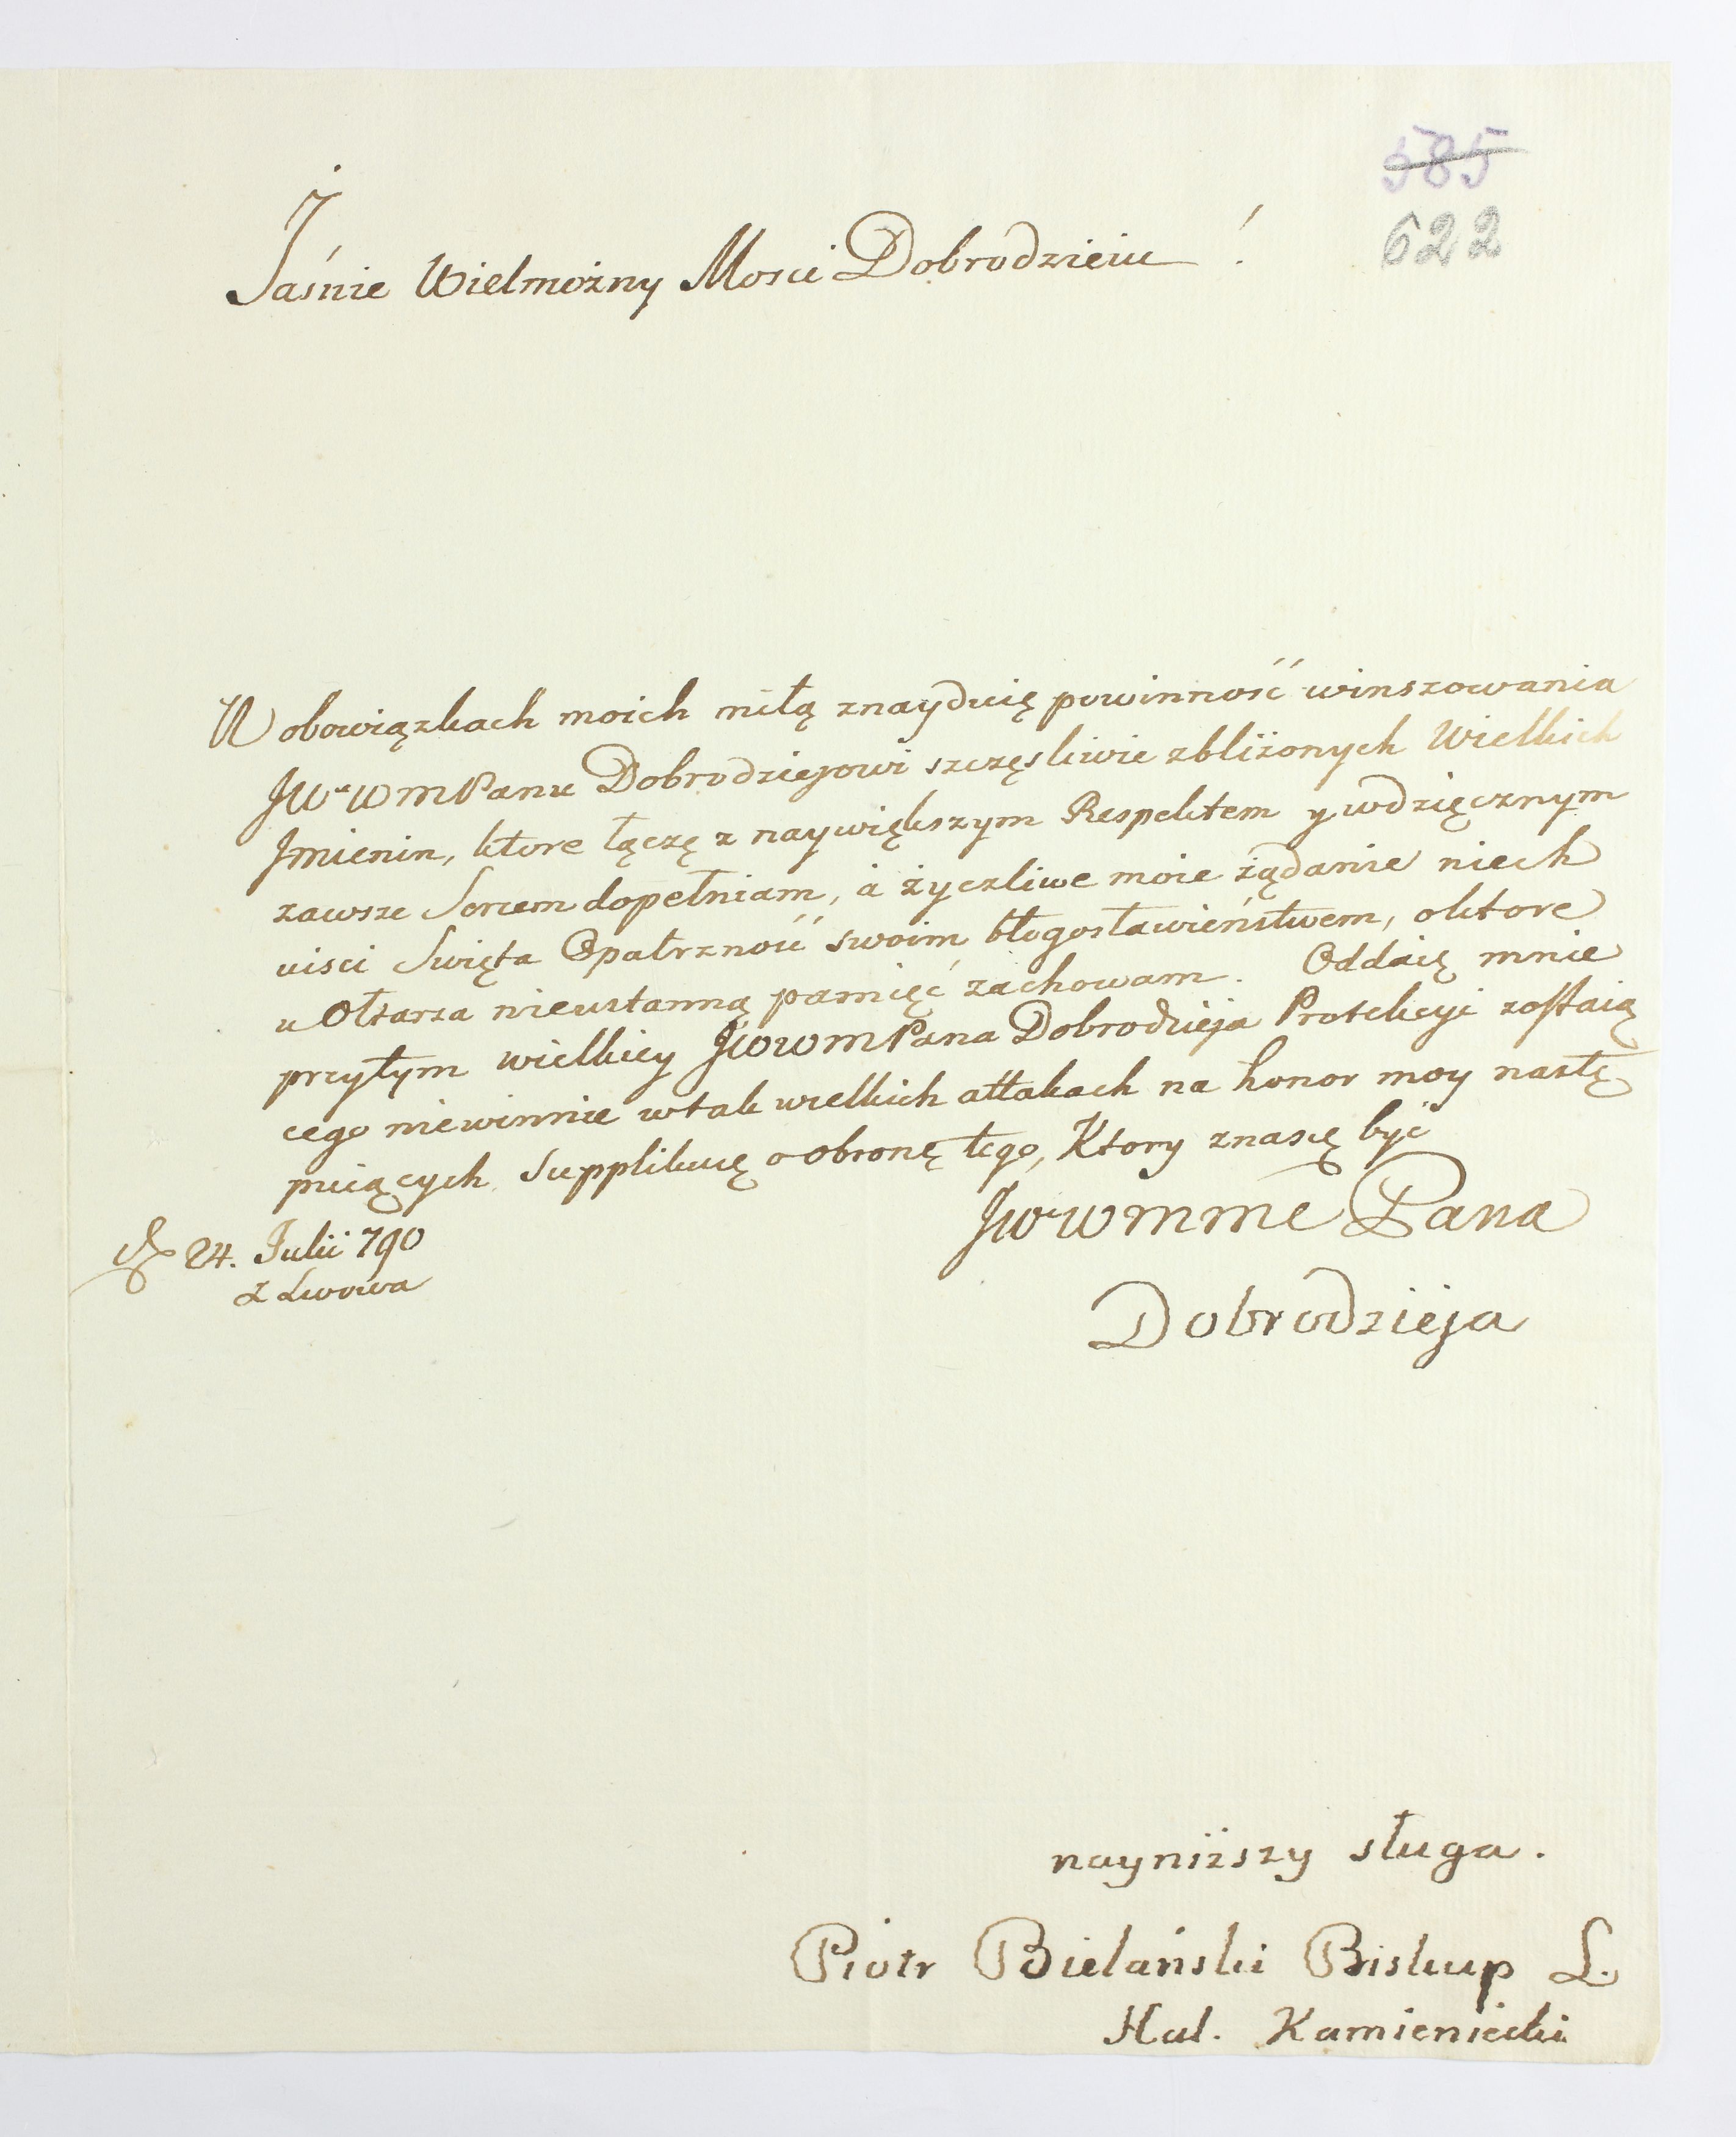 585
622
Jaśnie Wielmożny Mosci Dobrodzieiu !
W obowiązkach moich miłą znayduię powinność winszowania
JW WMPanu Dobrodziejowi szczęsliwie zbliżonych Wielkich
Jmienin, ktore łączę z naywiększym Respektem y wdzięcznym
zawsze Sercem dopełniam, à życzliwe moie żądanie niech
uisci Swięta Opatrzność swoim błogosławieństwem, oktore
u Ołtarza nieustanną pamięć zachowam. Oddaię mnie
przytym wielkiey JWWMPana Dobrodzieja Protekcyi zostaią
cego niewinnie wtak wielkich attakach na honor moy nastę
puiących Supplikuię o obronę tego, Ktory znasię być
JW WMME Pana
Dobrodzieja
24. Julii 790
z Lwowa
nayniższy sługa.
Piotr Bielański Biskup L.
Hal. Kamieniecki